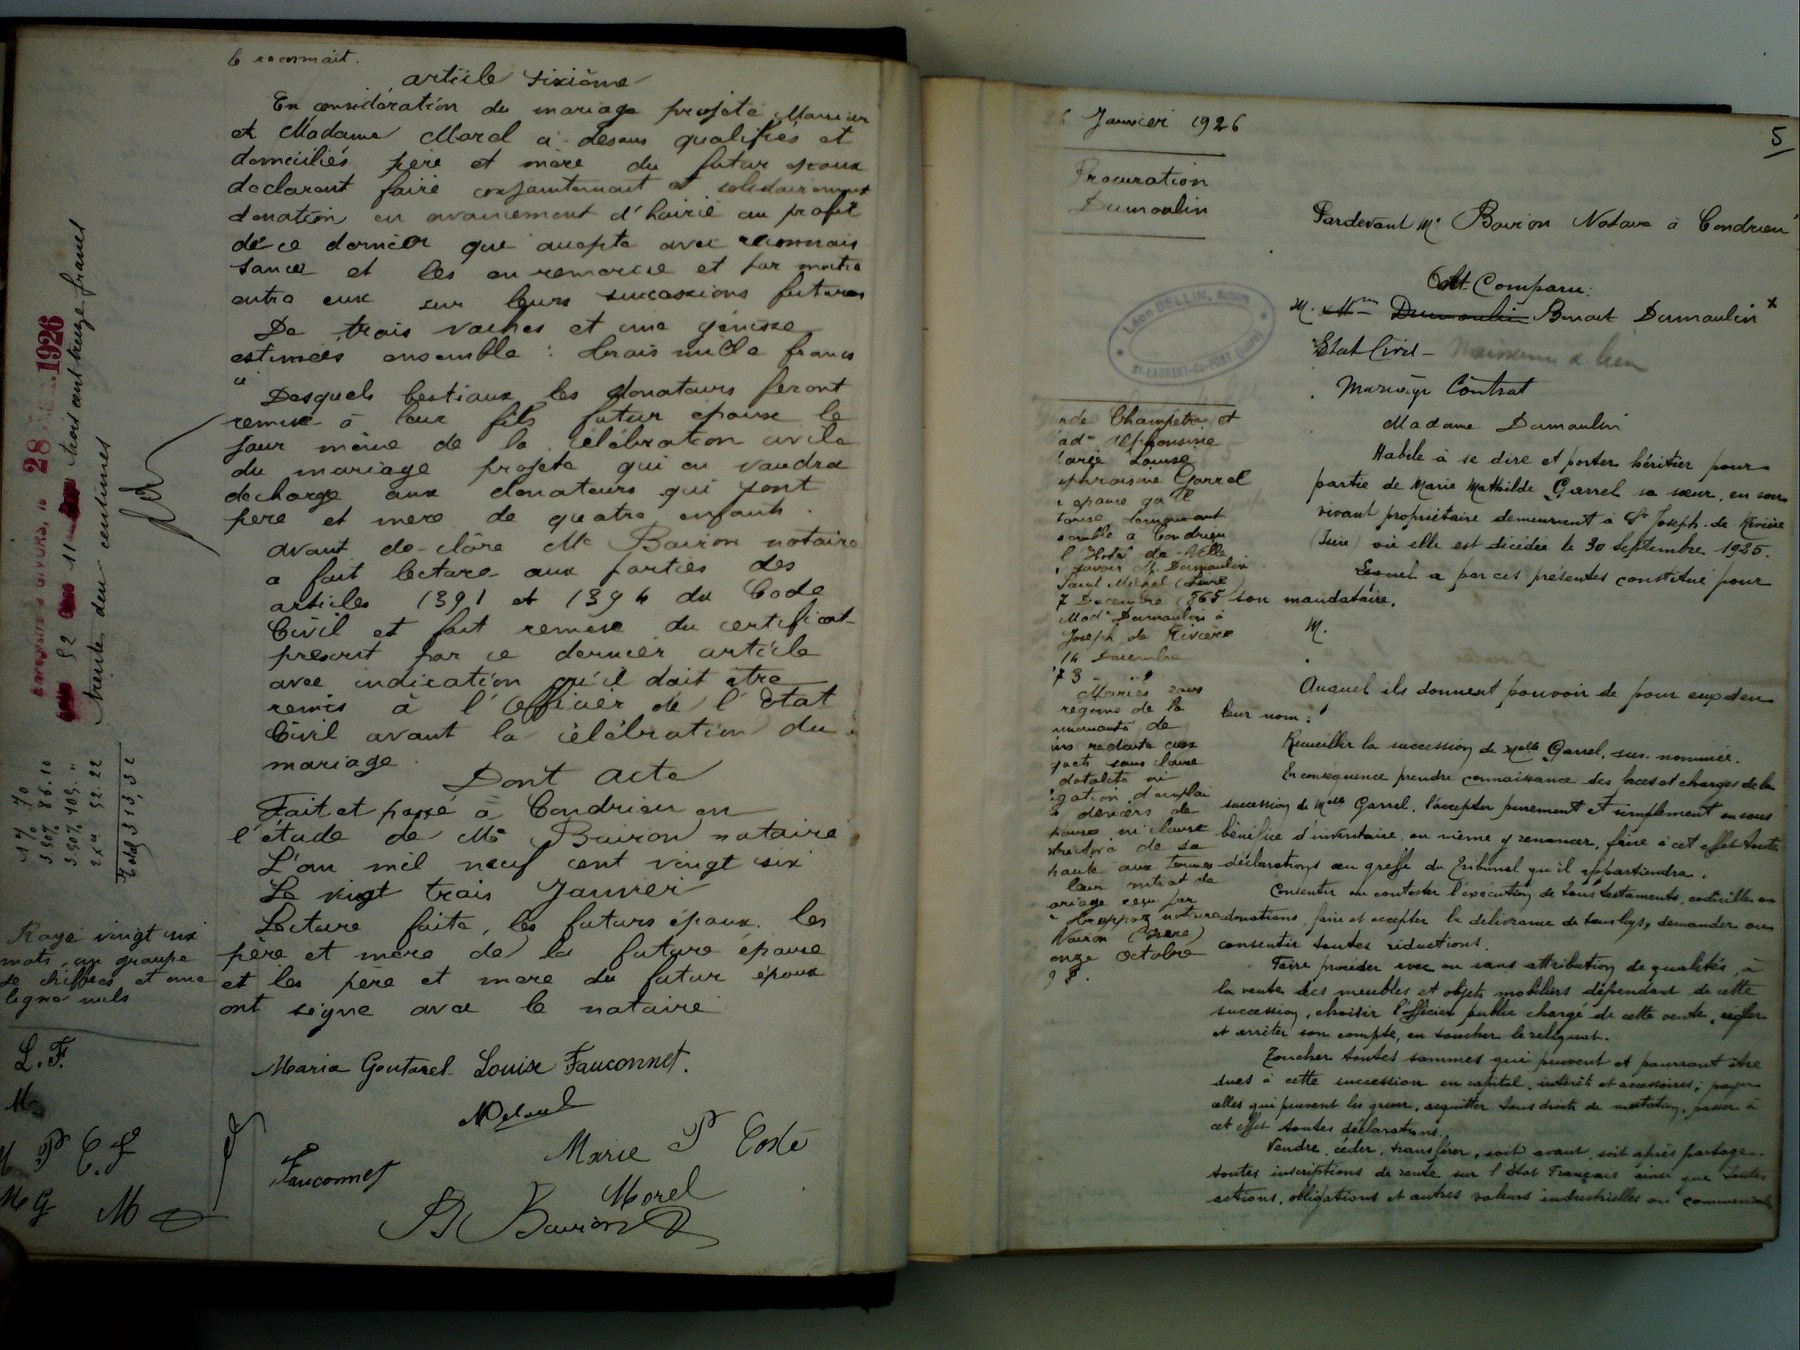 le reconnait.
article sixième
En considération du mariage projeté Monsieur
et Madame Morel ci dessus qualifiés et
domiciliés père et mère du futur époux
declarent faire conjointement et solidairement
donation en avancement d'hoirie au profit
de ce dernier qui accepte avec reconnais
sance et les en remercie et par moitié
entre eux sur leurs successions futures
De trois vaches et une génisse
estimées ensemble : trois mille francs
Desquels bestiaux les donateurs feront
remise à leur fils futur époux le
jour même de la célébration civile
du mariage projeté qui en vaudra
decharge aux donateurs qui sont
père et mère de quatre enfants.
avant de clore Me Bouron notaire
a fait lecture aux parties des
articles 1391 et 1394 du Code
Civil et fait remise du certificat
prescrit par ce dernier article
avec indication qu'il doit être
remis à l'Officier de l'Etat
Civil avant la célébration du
mariage.
Dont acte
Fait et passé à Condrieu en
l'étude de Me Bouron notaire
L'an mil neuf cent vingt six
Le vingt trois Janvier
Lecture faite, les futurs époux les
père et mère de la future épouse
et les père et mère du futur époux
ont signé avec le notaire
Maria Goutarel Louise Fauconnet.
Marie P Coste
Fauconnet
Morel
Bouron
28 1926
trois cent treize francs
trente deux centimes
3.50% 86.10
3.50% 409. "
52.22
Total 313,32
Rayé vingt six
mots, un groupe
de chiffres et une
ligne nuls
L. F.
M
P C. F
M G M
Janvier 1926
5
Procuration
Dumoulin
Léon BELLIN, Notaire
ST-LAURENT-du-PONT (Isère)
Pardevant Me Bouron Notaire à Condrieu
Ont Comparu:
M. Dumoulin Benoit Dumoulin x
Etat Civil - Naissance & lieu
Mariage Contrat
Madame Dumoulin
Habile à se dire et porter héritier pour
partie de Marie Mathilde Garrel sa sœur, en son
vivant propriétaire demeurant à St Joseph de Rivière
(Isère) où elle est décédée le 30 Septembre 1925.
Lesquel a par ces présentes constitué pour
son mandataire.
M.
Auquel ils donnent pouvoir de pour eux et en
leur nom:
Recueillir la succession de Melle Garrel, sus-nommée.
En conséquence prendre connaissance des forces et charges de la
succession de Melle Garrel, l'accepter purement et simplement ou sous
bénéfice d'inventaire, ou même y renoncer, faire à cet effet toutes
déclarations au greffe du Tribunal qu'il appartiendra.
Consentir ou contester l'exécution de tous testaments, codicilles ou
donations, faire et accepter la délivrance de tous legs, demander ou
consentir toutes réductions.
Faire procéder avec ou sans attribution de qualités, à
la vente des meubles et objets mobiliers dépendant de cette
succession, choisir l'officier public chargé de cette vente, régler
et arrêter son compte, en toucher le reliquat.
Toucher toutes sommes qui peuvent et pourront être
dues à cette succession en capital, intérêts et accessoires; payer
celles qui peuvent les grever, acquitter tous droits de mutation, passer à
cet effet toutes déclarations.
Vendre, céder, transférer, soit avant, soit après partage
toutes inscriptions de rente sur l'Etat Français ainsi que toutes
actions, obligations et autres valeurs industrielles ou commerciales
Champetre et
Alphonsine
Louise
Garrel
demeurant
ensemble à Condrieu
l'Hotel de Ville
savoir M. Dumoulin
Saint Michel (Loire)
7 Decembre 1865
Made Dumoulin à
Joseph de Rivière
14 Decembre
73
Mariés sous
régime de la
communauté de
sans clause
dotalité ni
d'emploi
deniers de
ni clause
de sa
aux termes
leur contrat de
mariage reçu par
notaire
Voiron (Isère)
onze Octobre
98.